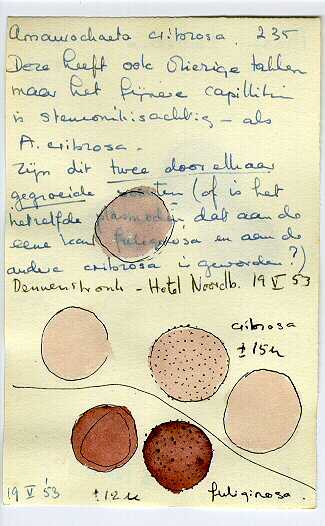 Amaurochaeta cribrosa. 235
Deze heeft ook vliezige takken
maar het fijnere capillitium
is stemonitisachtig - als
A. cribrosa.
Zijn dit twee door elkaar
gegroeide soorten (of is het
hetzelfde plasmodium dat aan de
eene kant fuliginosa en aan de
andere cribrosa is geworden?)
Dennenstronk - Hotel Noordb. 19 V 53
cribrosa
± 15 µ
19 V '53
± 12 µ
fuliginosa.